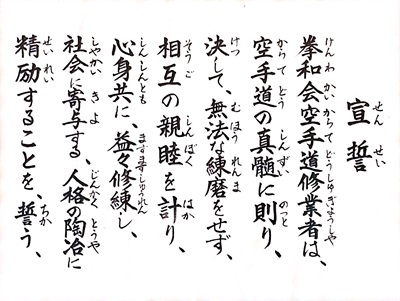 宣誓
拳和会空手道修業者は、
空手道の真髄に則り、
決して、無法な練磨をせず、
相互の親睦を計り、
心身共に、益々修練し、
社会に寄与する、人格の陶冶に
精励することを、誓う、